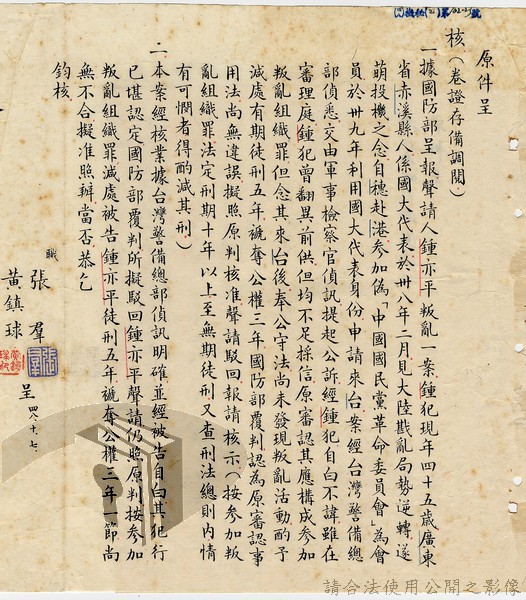 原件呈
核（卷證存備調閱）
一據國防部呈報聲請人鍾亦平叛亂一案鍾犯現年四十五歲廣東
省赤溪縣人係國大代表於卅八年二月見大陸戡亂局勢逆轉遂
萌投機之念自穗赴港參加偽「中國國民黨革命委員會」為會
員於卅九年利用國大代表身份申請來台案經台灣警備總
部偵悉交由軍事檢察官偵訊提起公訴經鍾犯自白不諱雖在
審理庭鍾犯曾翻異前供但均不足採信原審認其應構成參加
叛亂組織罪但念其來台後奉公守法尚未發現叛亂活動酌予
減處有期徒刑五年褫奪公權三年國防部覆判認為原審認事
用法尚無違誤擬照原判核准聲請駁回報請核示（按參加叛
亂組織罪法定刑期十年以上至無期徒刑又查刑法總則內情
有可憫者得酌減其刑）
二本案經核業據台灣警備總部偵訊明確並經被告自白其犯行
已堪認定國防部覆判所擬駁回鍾亦平聲請仍照原判按參加
叛亂組織罪減處被告鍾亦平徒刑五年褫奪公權三年一節尚
無不合擬准照辦當否恭乞
鈞核
職 張群
黃鎮球 呈 四八、十、七、
請合法使用公開之影像